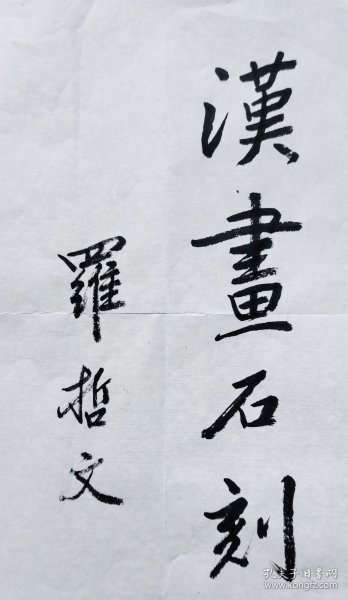 漢畫石刻
羅哲文
孔夫子旧书网
www.kongfz.com